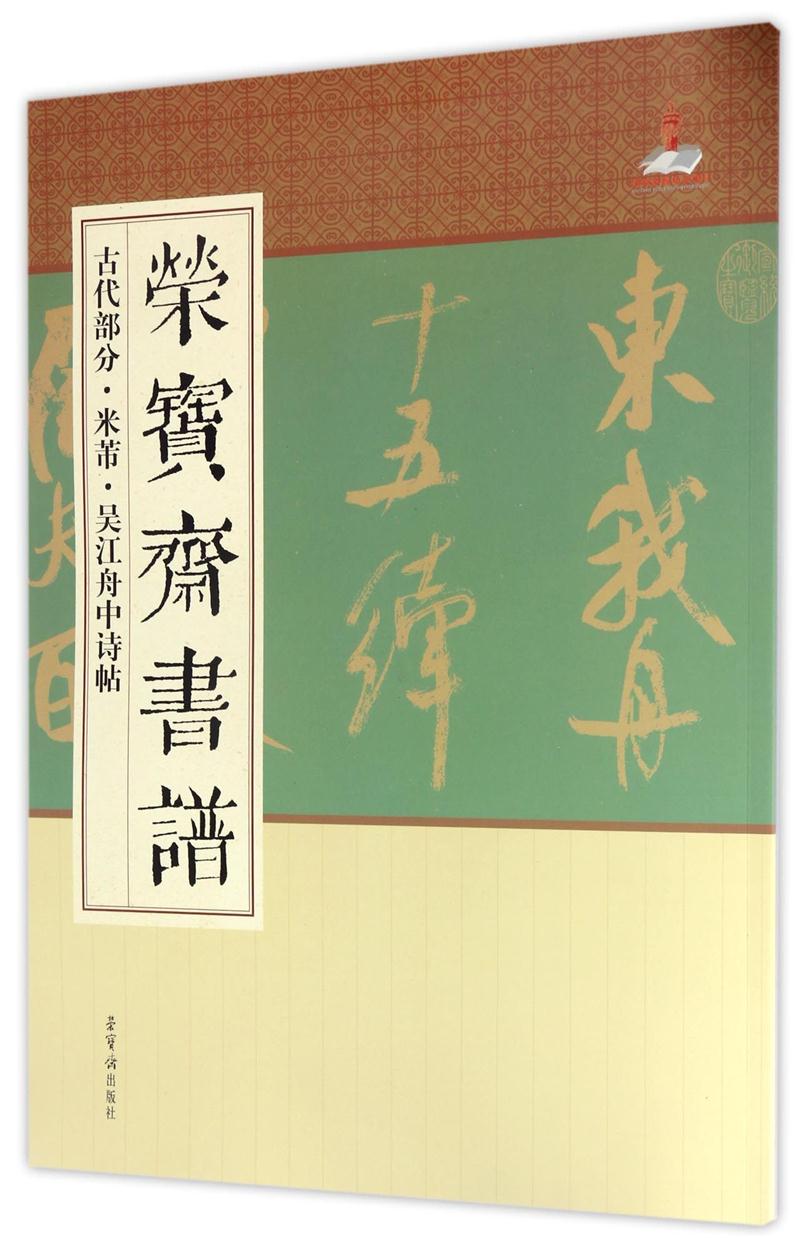 榮寶齋書譜
古代部分·米芾·吴江舟中诗帖
東我舟
十五纤
百
荣寶斋出版社